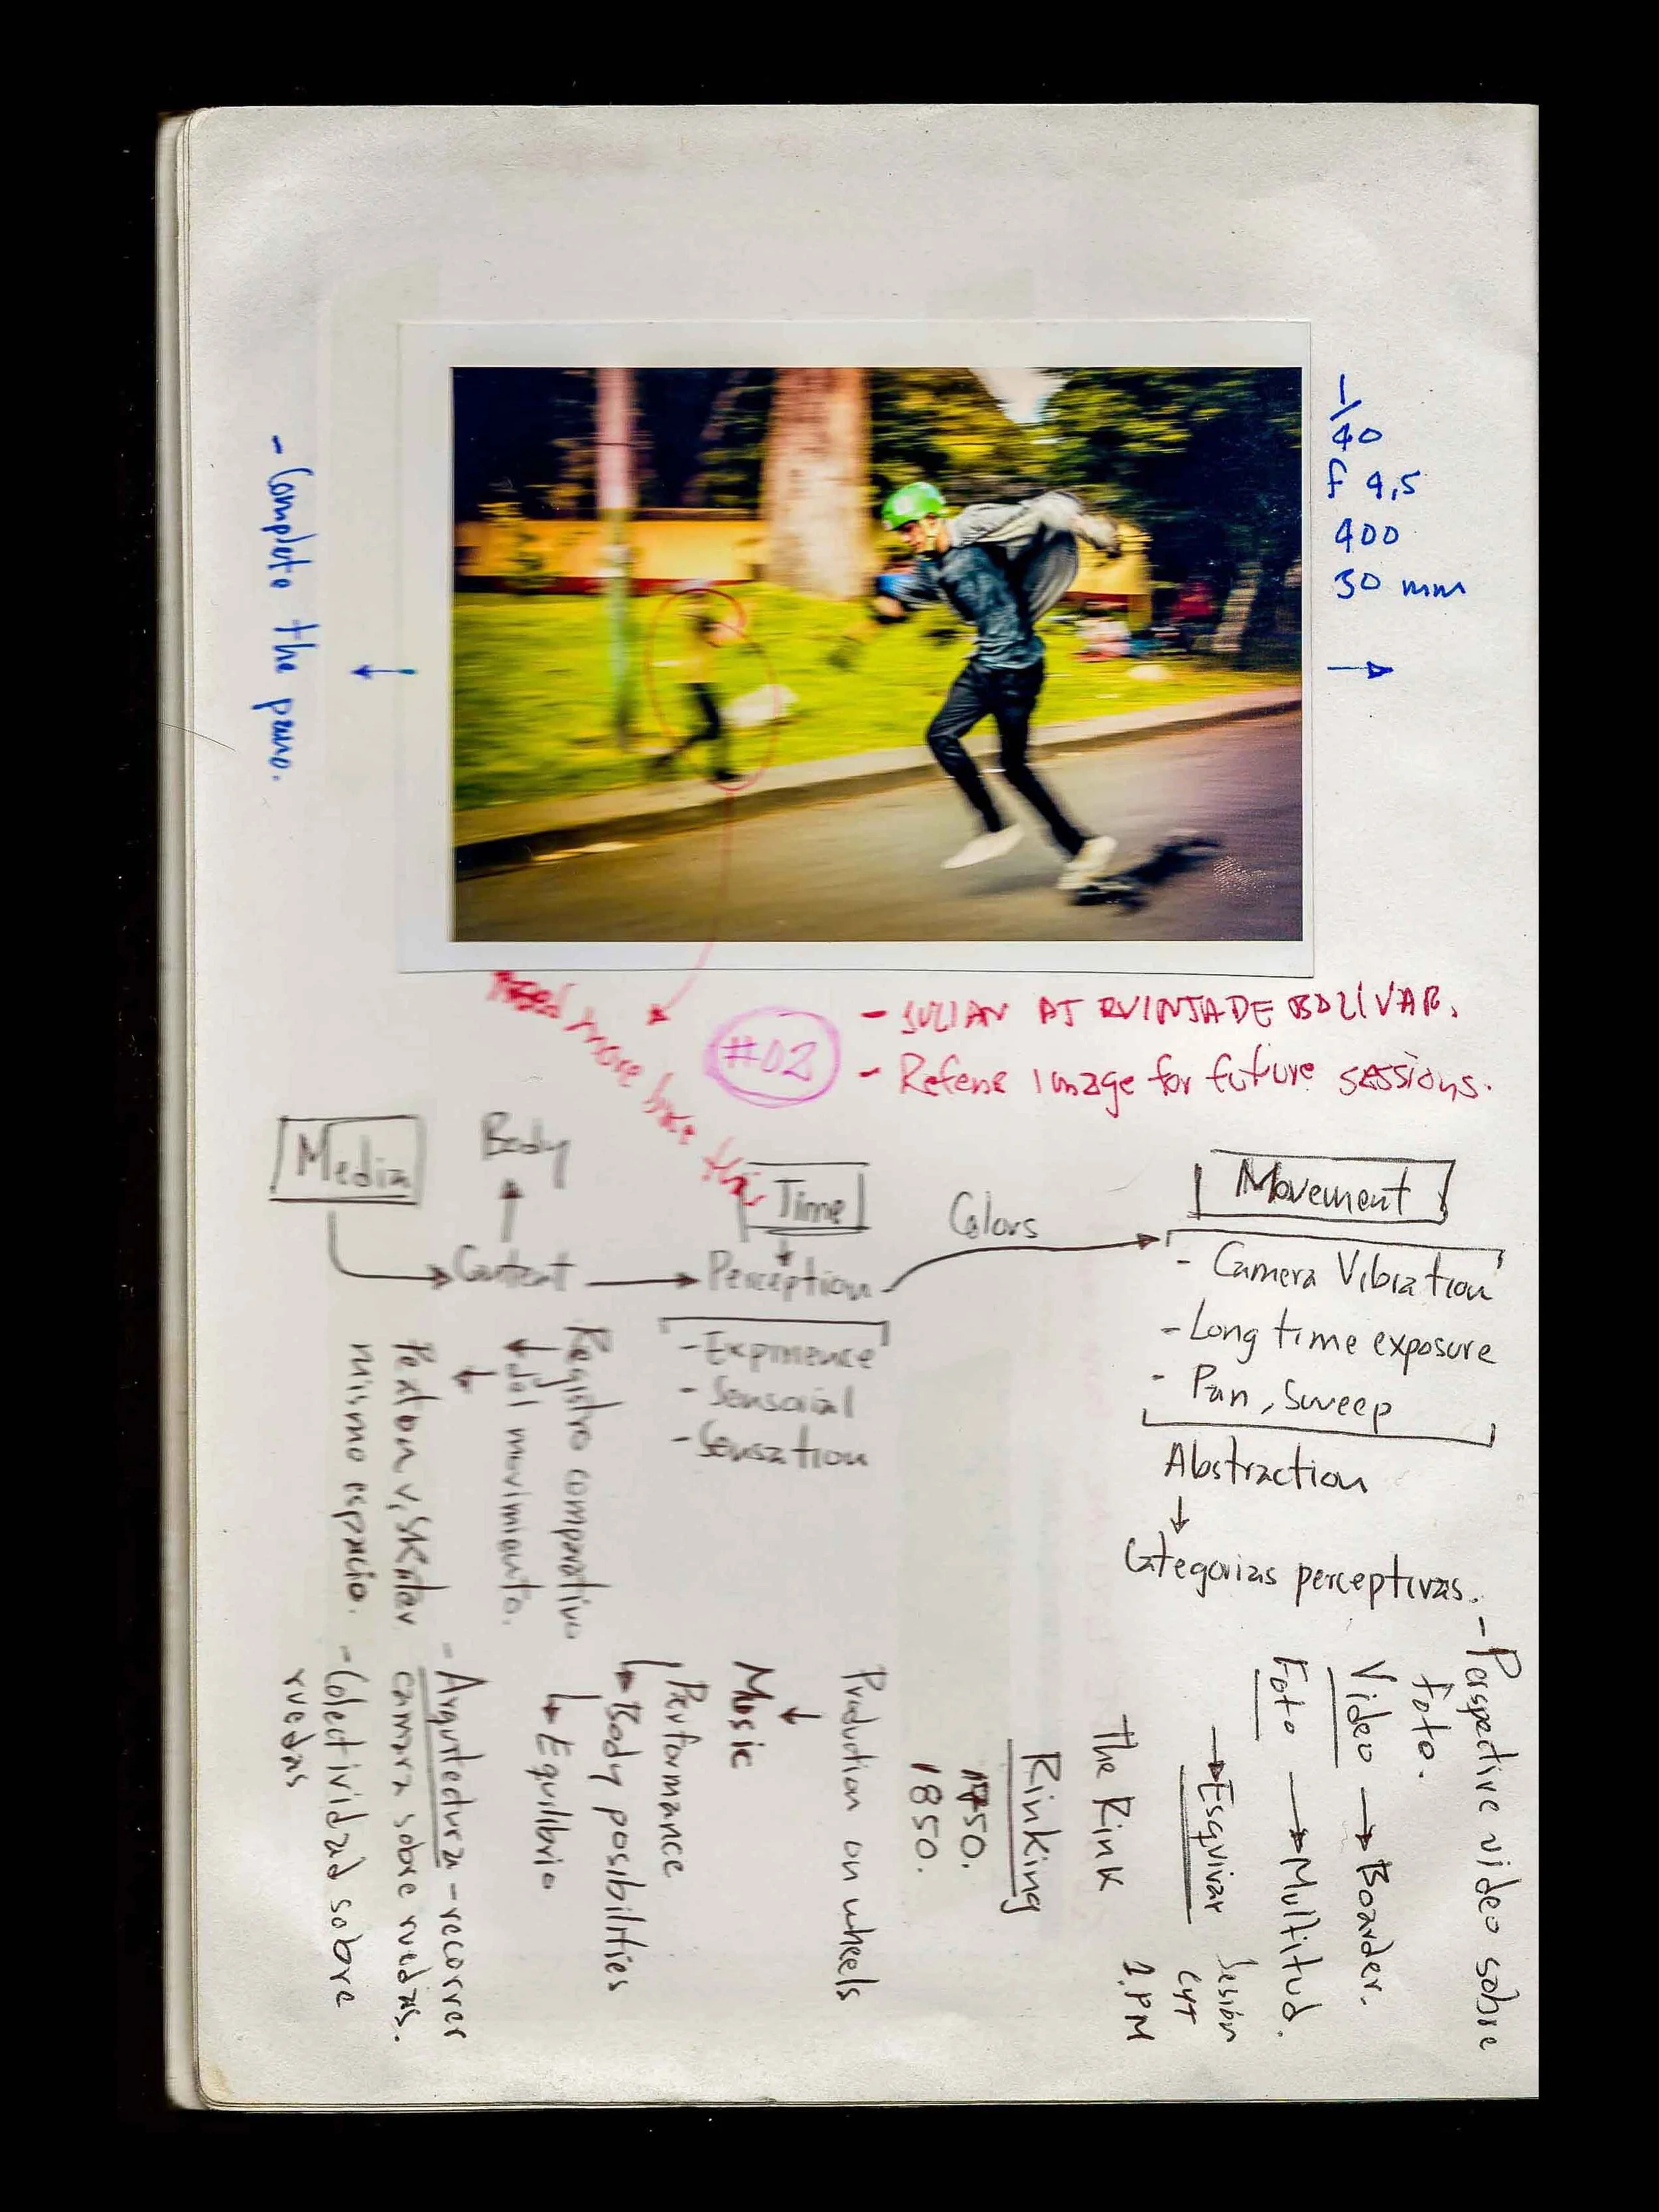 1/40
f 4,5
400
30 mm
- Complete the pano.
- JULIAN AT QUINTA DE BOLÍVAR.
- Refens image for future sessions.
#02
Need more
Media
Body
Content
Time
Perception
- Exprience
- Sensorial
- Sensation
Colors
Movement
- Camera Vibration
- Long time exposure
- Pan, Sweep
Abstraction
Categorias perceptivas.
Registro comparativo
del movimiento.
Peaton v, Skater
mismo espacio.
- Arquitectura - recorrer
camara sobre ruedas.
- Colectividad sobre
ruedas
Production on wheels
Music
Performance
Body posibilities
Equilibrio
- Perspective video sobre
foto.
Video → Boarder.
Foto → Multitud.
→ Esquivar
Sesión
CyT
1.PM
The Rink
Rinking
1750.
1850.